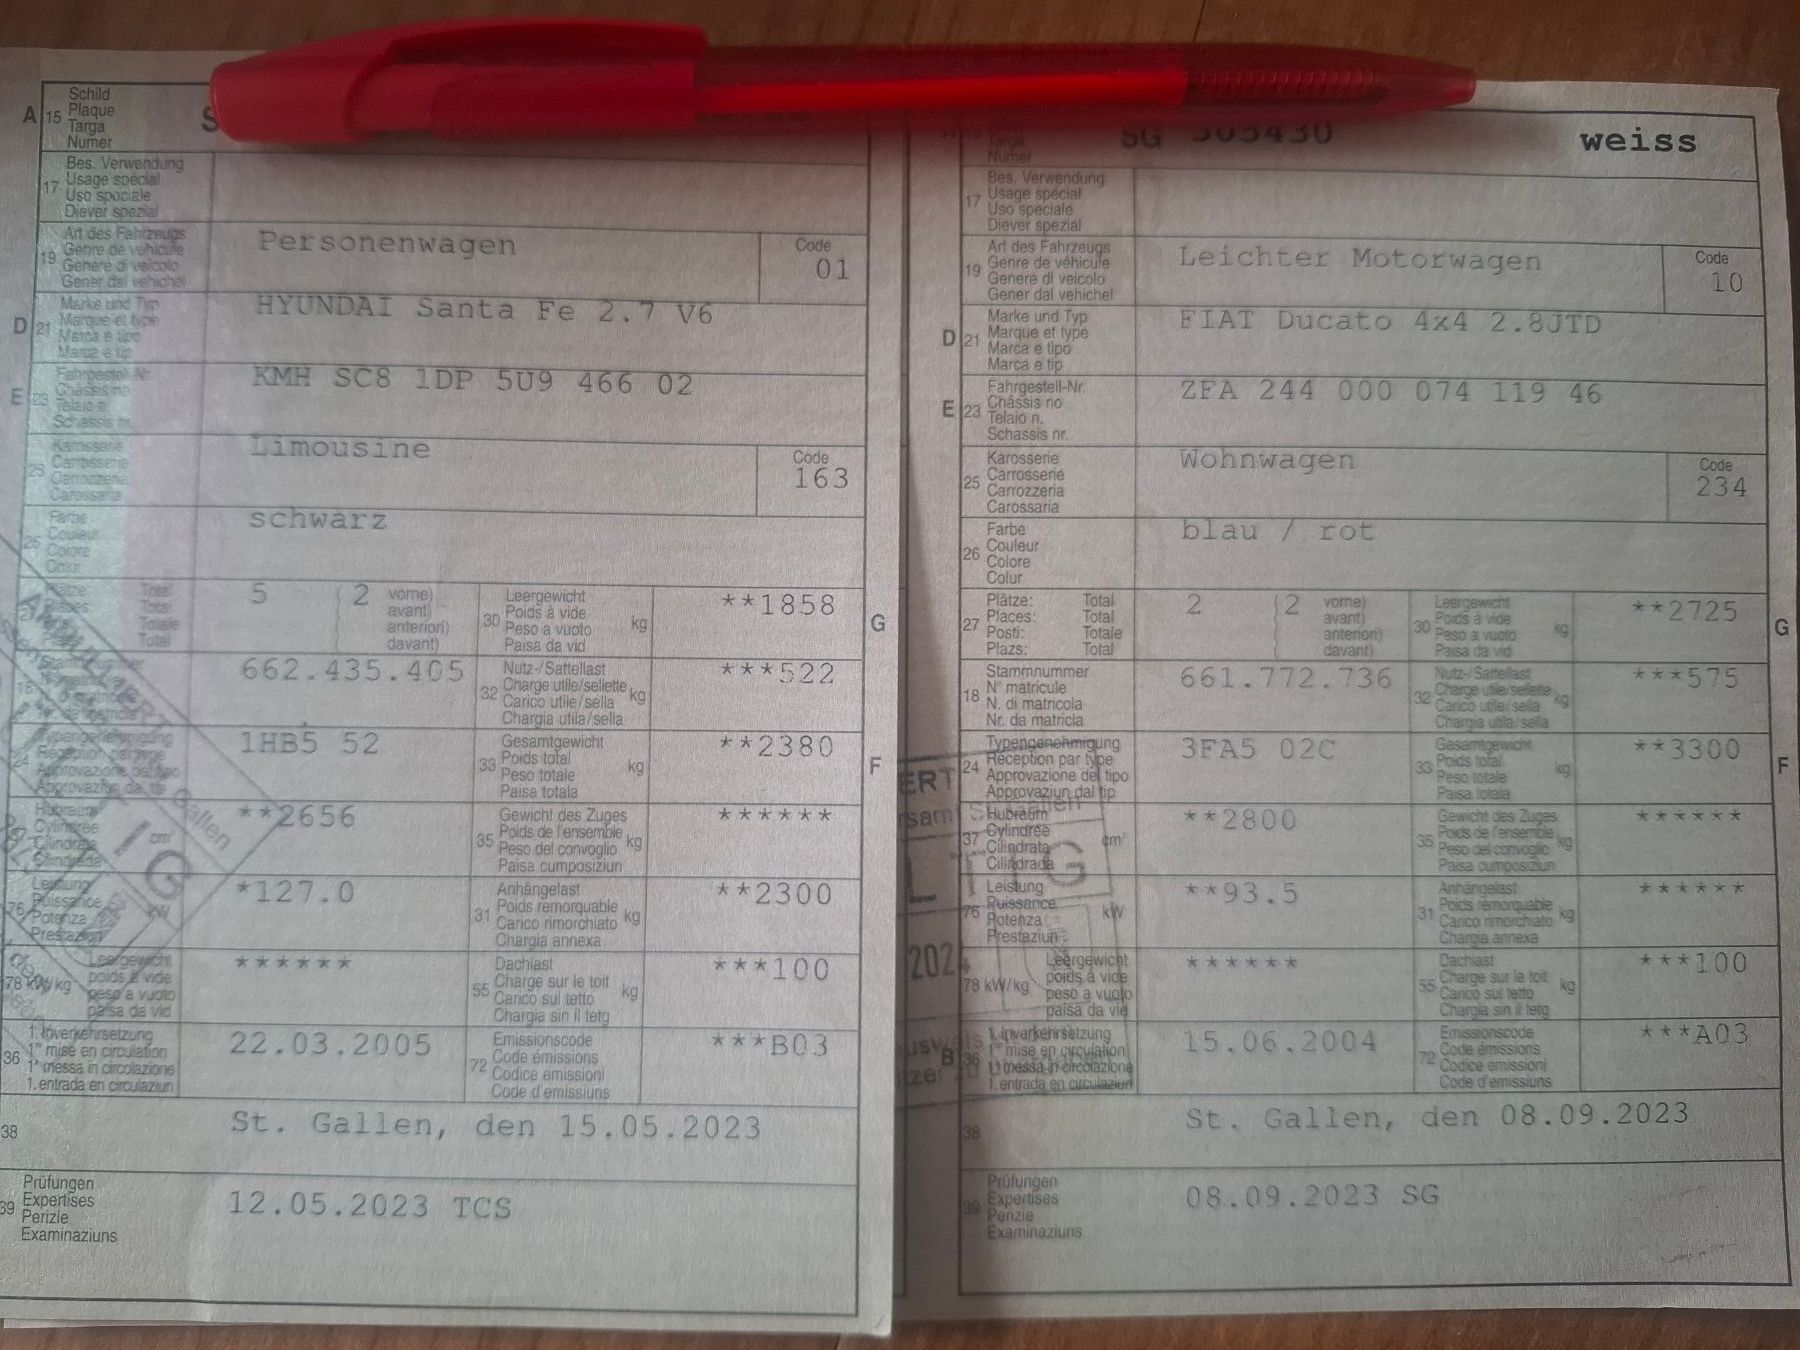 A 15 Schild
Plaque
Targa
Numer
17 Bes. Verwendung
Usage spécial
Uso speciale
Diever spezial
19 Art des Fahrzeugs
Genre de véhicule
Genere di veicolo
Gener dal vehichel
Personenwagen
Code
01
D 21 Marke und Typ
Marque et type
Marca e tipo
Marca e tip
HYUNDAI Santa Fe 2.7 V6
E 23 Fahrgestell-Nr.
Châssis no
Telaio n.
Schassis nr.
KMH SC8 1DP 5U9 466 02
25 Karosserie
Carrosserie
Carrozzeria
Carossaria
Limousine
Code
163
26 Farbe
Couleur
Colore
Colur
schwarz
Plätze: Total
Places: Total
Totale
Total
5 2 vorne)
avant)
anteriori)
davant)
30 Leergewicht
Poids à vide
Peso a vuoto
Paisa da vid
kg
**1858
G
18
662.435.405
32 Nutz-/Sattellast
Charge utile/sellette
Carico utile/sella
Chargia utila/sella
kg
***522
24 Typengenehmigung
1HB5 52
33 Gesamtgewicht
Poids total
Peso totale
Paisa totala
kg
**2380
F
Hubraum
Cylindrée
Cilindrata
Cilindrada
cm³
**2656
35 Gewicht des Zuges
Poids de l'ensemble
Peso del convoglio
Paisa cumposiziun
kg
******
76 Leistung
Puissance
Potenza
Prestaziun
kW
*127.0
31 Anhängelast
Poids remorquable
Carico rimorchiato
Chargia annexa
kg
**2300
78 kW/kg Leergewicht
poids à vide
peso a vuoto
paisa da vid
******
55 Dachlast
Charge sur le toit
Carico sul tetto
Chargia sin il tetg
kg
***100
36 1. Inverkehrsetzung
1re mise en circulation
1a messa in circolazione
1. entrada en circulaziun
22.03.2005
72 Emissionscode
Code émissions
Codice emissioni
Code d'emissiuns
***B03
38
St. Gallen, den 15.05.2023
39 Prüfungen
Expertises
Perizie
Examinaziuns
12.05.2023 TCS
Numer
weiss
17 Bes. Verwendung
Usage spécial
Uso speciale
Diever spezial
19 Art des Fahrzeugs
Genre de véhicule
Genere di veicolo
Gener dal vehichel
Leichter Motorwagen
Code
10
D 21 Marke und Typ
Marque et type
Marca e tipo
Marca e tip
FIAT Ducato 4x4 2.8JTD
E 23 Fahrgestell-Nr.
Châssis no
Telaio n.
Schassis nr.
ZFA 244 000 074 119 46
25 Karosserie
Carrosserie
Carrozzeria
Carossaria
Wohnwagen
Code
234
26 Farbe
Couleur
Colore
Colur
blau / rot
27 Plätze: Total
Places: Total
Posti: Totale
Plazs: Total
2 2 vorne)
avant)
anteriori)
davant)
30 Leergewicht
Poids à vide
Peso a vuoto
Paisa da vid
kg
**2725
G
18 Stammnummer
N° matricule
N. di matricola
Nr. da matricla
661.772.736
32 Nutz-/Sattellast
Charge utile/sellette
Carico utile/sella
Chargia utila/sella
kg
***575
24 Typengenehmigung
Réception par type
Approvazione del tipo
Approvaziun dal tip
3FA5 02C
33 Gesamtgewicht
Poids total
Peso totale
Paisa totala
kg
**3300
F
37 Hubraum
Cylindrée
Cilindrata
Cilindrada
cm³
**2800
35 Gewicht des Zuges
Poids de l'ensemble
Peso del convoglio
Paisa cumposiziun
kg
******
76 Leistung
Puissance
Potenza
Prestaziun
kW
**93.5
31 Anhängelast
Poids remorquable
Carico rimorchiato
Chargia annexa
kg
******
78 kW/kg Leergewicht
poids à vide
peso a vuoto
paisa da vid
******
55 Dachlast
Charge sur le toit
Carico sul tetto
Chargia sin il tetg
kg
***100
B 36 1. Inverkehrsetzung
1re mise en circulation
1a messa in circolazione
1. entrada en circulaziun
15.06.2004
72 Emissionscode
Code émissions
Codice emissioni
Code d'emissiuns
***A03
38
St. Gallen, den 08.09.2023
39 Prüfungen
Expertises
Perizie
Examinaziuns
08.09.2023 SG